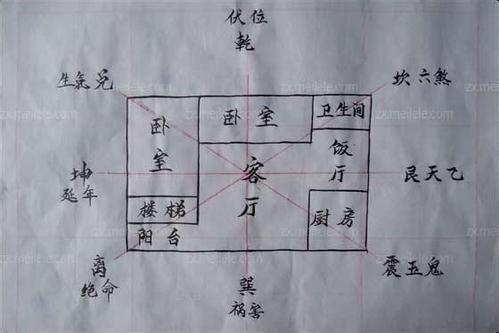 伏位
乾
生氣兑
坎六煞
卧室
卧室
卫生间
饭厅
坤
延年
客厅
艮天乙
楼梯
阳台
厨房
离
绝命
巽
祸害
震五鬼
zx.meilele.com
zx.meilele.com
zx.meilele.com
zx.meilele.com